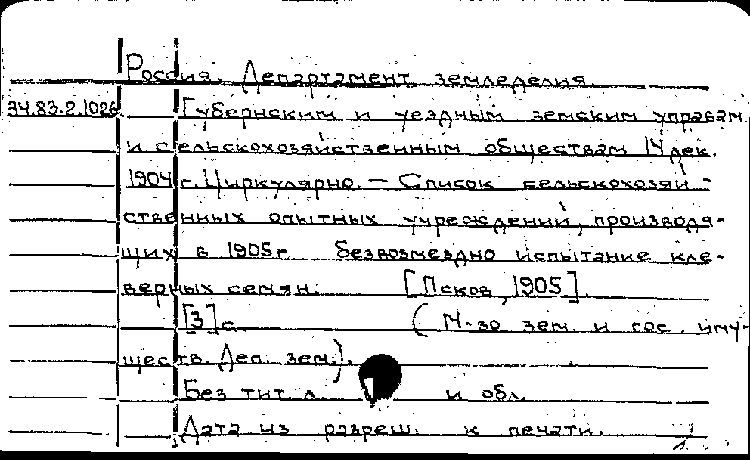 Россия. Департамент земледелия.
34.83.2.1026 Губернским и уездным земским управам
и сельскохозяйственным обществам 14 дек.
1904 г. Циркулярно. — Список сельскохозяй-
ственных опытных учреждений, производя-
щих в 1905 г безвозмездно испытание кле-
верных семян. [Псков, 1905].
[3] с. (М-во зем. и гос. иму-
ществ. Деп. зем.).
Без тит. л. и обл.
Дата из разреш. к печати.